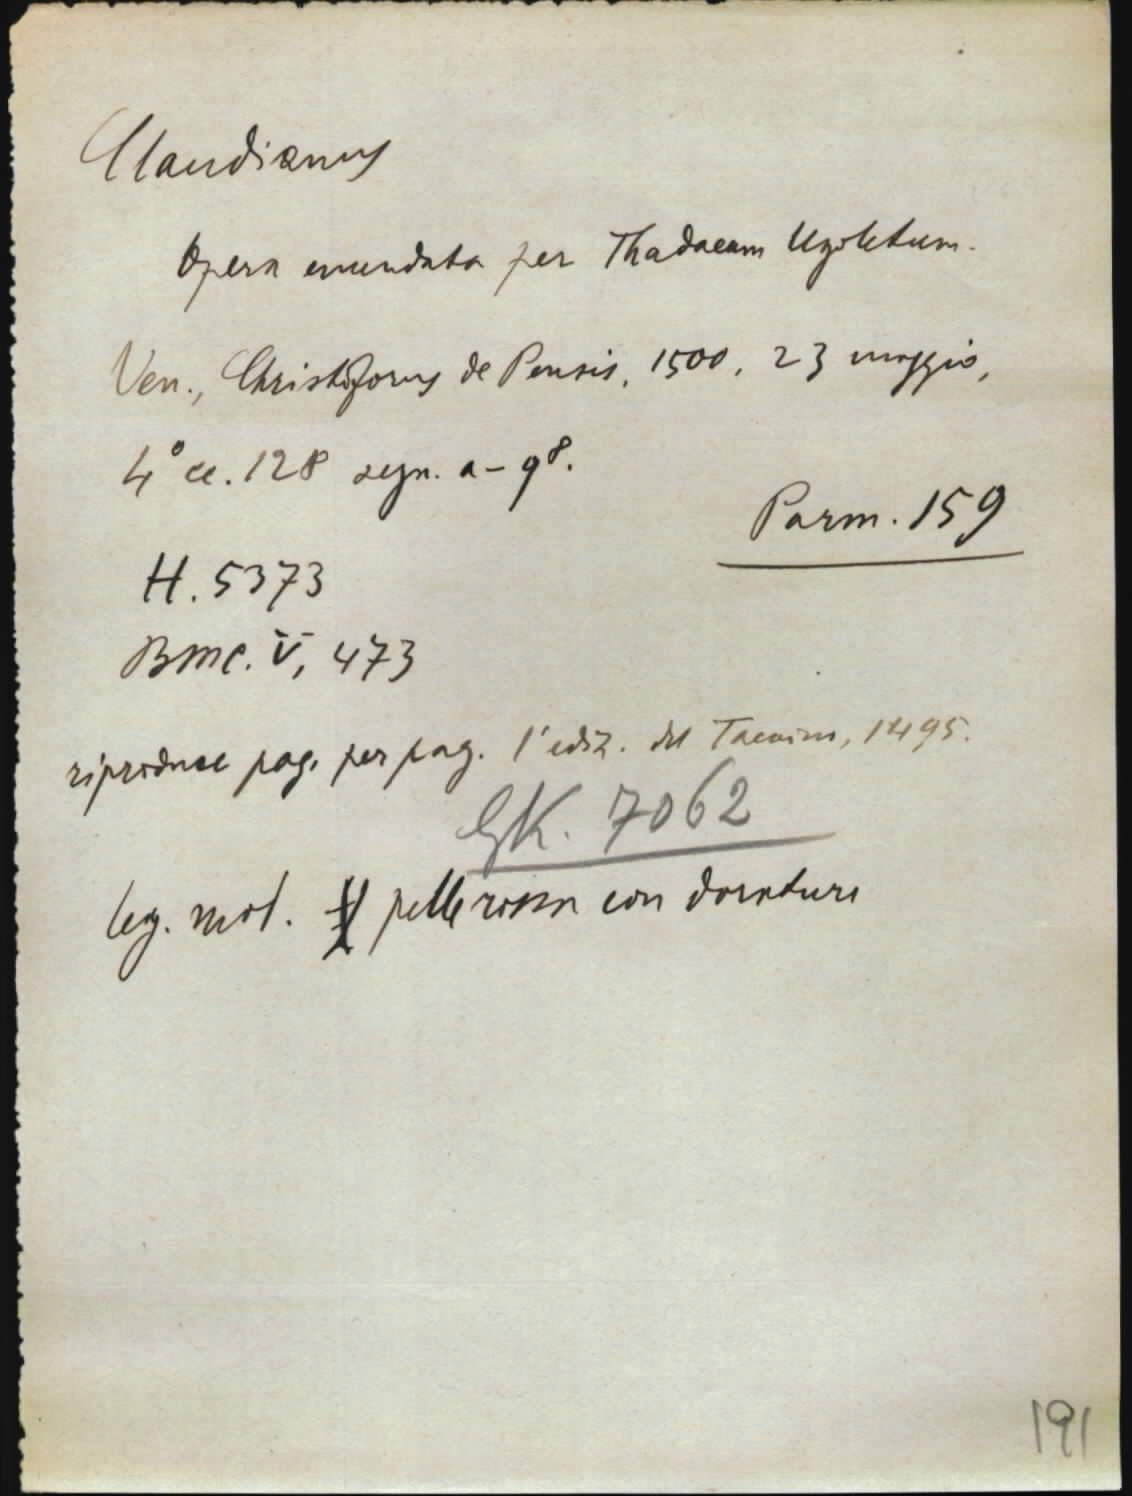 Claudianus
Opera emendata per Thadaeum Ugoletum.
Ven., Christoforus de Pensis, 1500, 23 maggio,
4° cc. 128 segn. a-q⁸.
Parm. 159
H. 5373
BMC. V, 473
riproduce pag. per pag. l'ediz. del Tacuino, 1495.
GK. 7062
leg. mod. pelle rossa con dorature
191